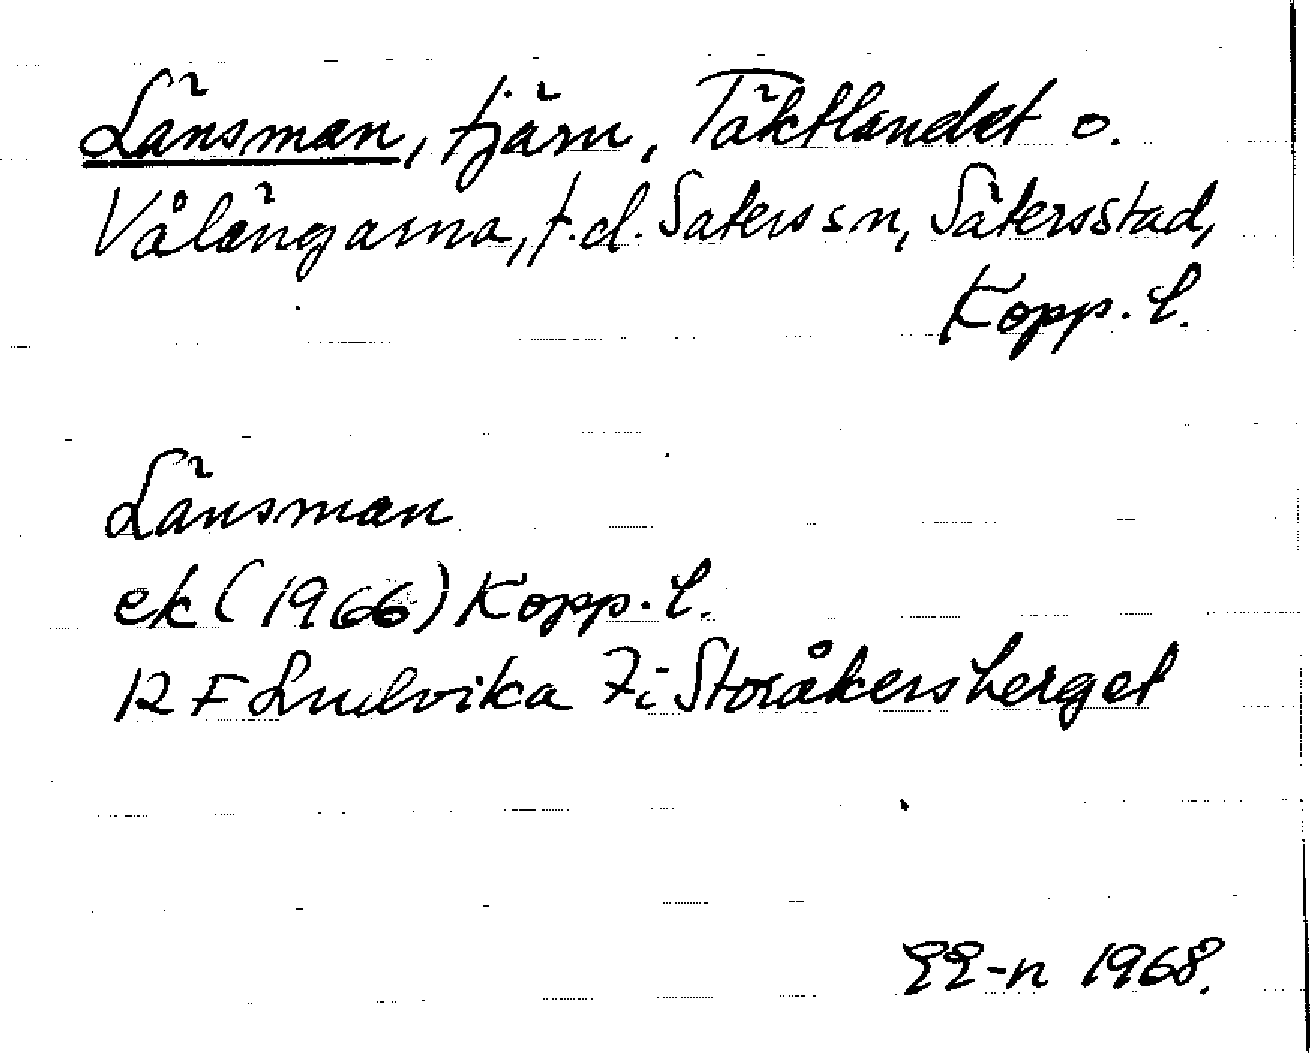 Länsman, tjärn, Täktlandet o.
Vålängarna, t.d. Säters sn, Säters stad,
Kopp. l.
Länsman
ek (1966) Kopp. l.
12 F Ludvika 7i Storåkersberget
EE-n 1968.